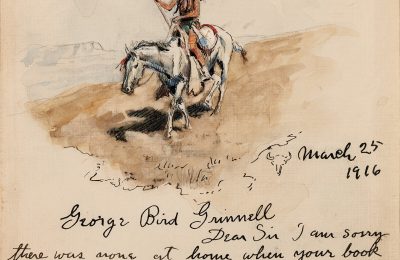 March 25
1916
George Bird Grinnell
Dear Sir I am sorry
there was none at home when your book